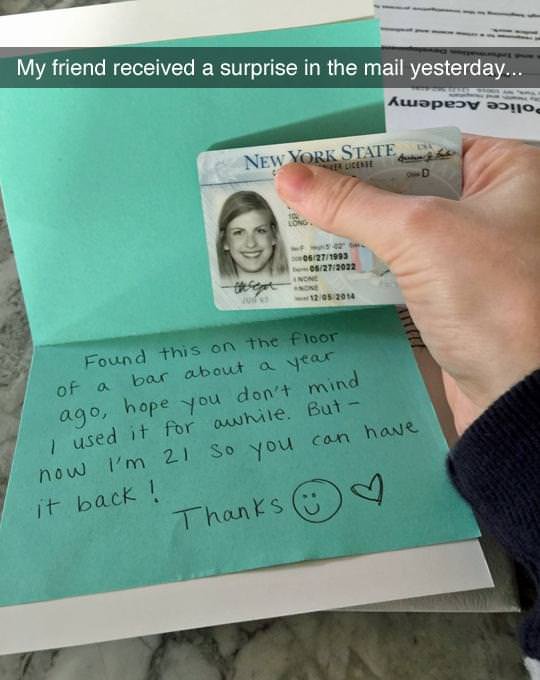 My friend received a surprise in the mail yesterday...
Police Academy
NEW YORK STATE USA
DRIVER LICENSE
D
F 5'-02"
06/27/1993
Expires 06/27/2022
NONE
NONE
12/05/2014
JUN 93
Found this on the floor
of a bar about a year
ago, hope you don't mind
I used it for awhile. But –
now I'm 21 so you can have
it back!
Thanks